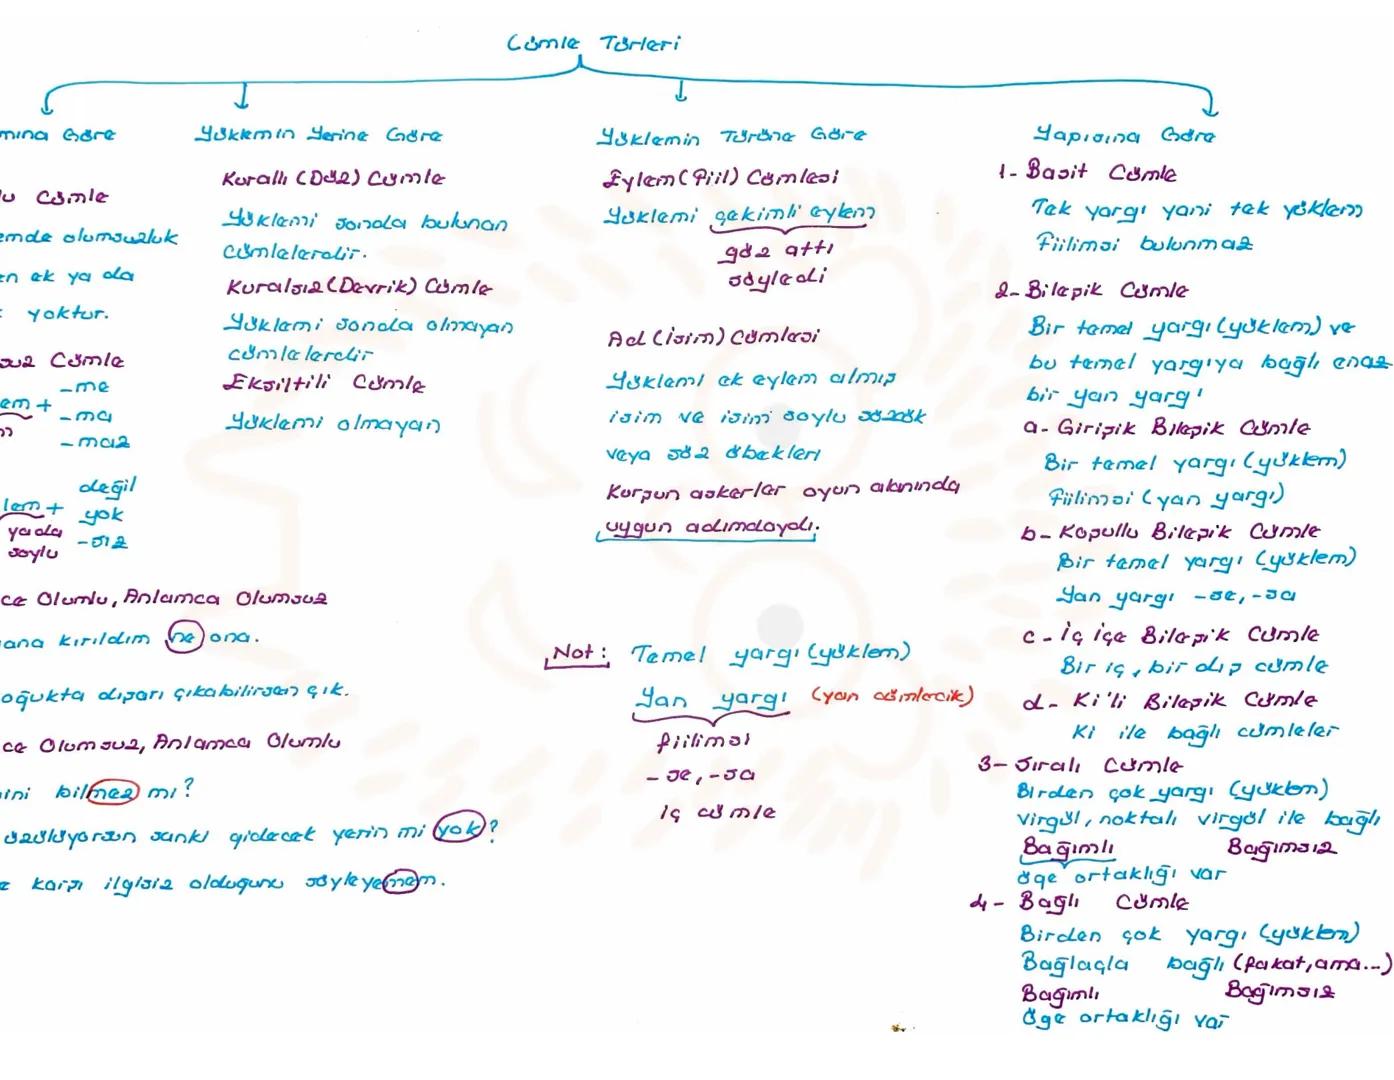 Cümle Türleri
mına Göre
lu Cümle
emde olumsuzluk
en ek ya da
yoktur.
suz Cümle
-me
em + -ma
-maz
değil
lem + yok
ya da -sız
soylu
ce Olumlu, Anlamca Olumsuz
ana kırıldım ne ona.
oğukta dışarı çıkabilirsen çık.
ce Olumsuz, Anlamca Olumlu
ini bilmez mi?
üzülüyorsun sanki gidecek yerin mi yok?
e karşı ilgisiz olduğunu söyleyemem.
Yüklemin Yerine Göre
Kurallı (Düz) Cümle
Yüklemi sonda bulunan
cümlelerdir.
Kuralsız (Devrik) Cümle
Yüklemi sonda olmayan
cümlelerdir
Eksiltili Cümle
Yüklemi olmayan
Yüklemin Türüne Göre
Eylem (Fiil) Cümlesi
Yüklemi çekimli eylem
göz attı
söyledi
Ad (İsim) Cümlesi
Yüklemi ek eylem almış
isim ve isim soylu sözcük
veya söz öbekleri
Kurşun askerler oyun alanında
uygun adımdaydı.
Not: Temel yargı (yüklem)
Yan yargı (yan cümlecik)
fiilimsi
-se, -sa
iç cümle
Yapısına Göre
1- Basit Cümle
Tek yargı yani tek yüklem
Fiilimsi bulunmaz
2- Bileşik Cümle
Bir temel yargı (yüklem) ve
bu temel yargıya bağlı enaz
bir yan yargı
a- Girişik Bileşik Cümle
Bir temel yargı (yüklem)
Fiilimsi (yan yargı)
b- Koşullu Bileşik Cümle
Bir temel yargı (yüklem)
Yan yargı -se, -sa
c- İç içe Bileşik Cümle
Bir iç, bir dış cümle
d- Ki'li Bileşik Cümle
Ki ile bağlı cümleler
3- Sıralı Cümle
Birden çok yargı (yüklem)
virgül, noktalı virgül ile bağlı
Bağımlı Bağımsız
öge ortaklığı var
4- Bağlı Cümle
Birden çok yargı (yüklem)
Bağlaçla bağlı (fakat, ama...)
Bağımlı Bağımsız
Öge ortaklığı var